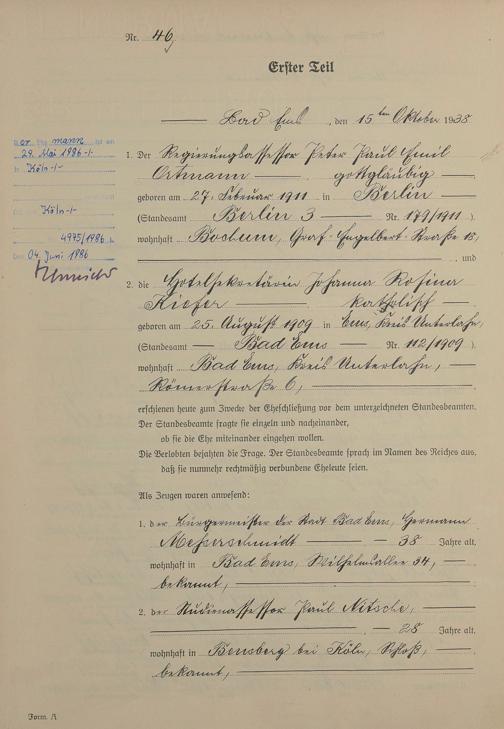 Nr. 46
Erster Teil
Bad Ems, den 15ten Oktober 1938
Der Ehemann ist am
29. Mai 1986 -/-
in Köln -/-
Köln -/-
4975/1986
Den 04. Juni 1986
1. Der Regierungsassessor Peter Paul Emil
Ortmann gottgläubig
geboren am 27. Februar 1911 in Berlin
(Standesamt Berlin 3 Nr. 179/1911)
wohnhaft Bochum, Graf-Engelbert-Straße 18,
und
2. die Hotelsekretärin Johanna Rosina
Kiefer katholisch
geboren am 25. August 1909 in Ems, Kreis Unterlahn,
(Standesamt Bad Ems Nr. 112/1909)
wohnhaft Bad Ems, Kreis Unterlahn,
Römerstraße 6,
erschienen heute zum Zwecke der Eheschließung vor dem unterzeichneten Standesbeamten.
Der Standesbeamte fragte sie einzeln und nacheinander,
ob sie die Ehe miteinander eingehen wollen.
Die Verlobten bejahten die Frage. Der Standesbeamte sprach im Namen des Reiches aus,
daß sie nunmehr rechtmäßig verbundene Eheleute seien.
Als Zeugen waren anwesend:
1. der Bürgermeister der Stadt Bad Ems, Hermann
Messerschmidt 38 Jahre alt,
wohnhaft in Bad Ems, Wilhelmsallee 34,
bekannt,
2. der Studienassessor Paul Nitsche,
28 Jahre alt,
wohnhaft in Bensberg bei Köln, Schloß,
bekannt,
Form. A